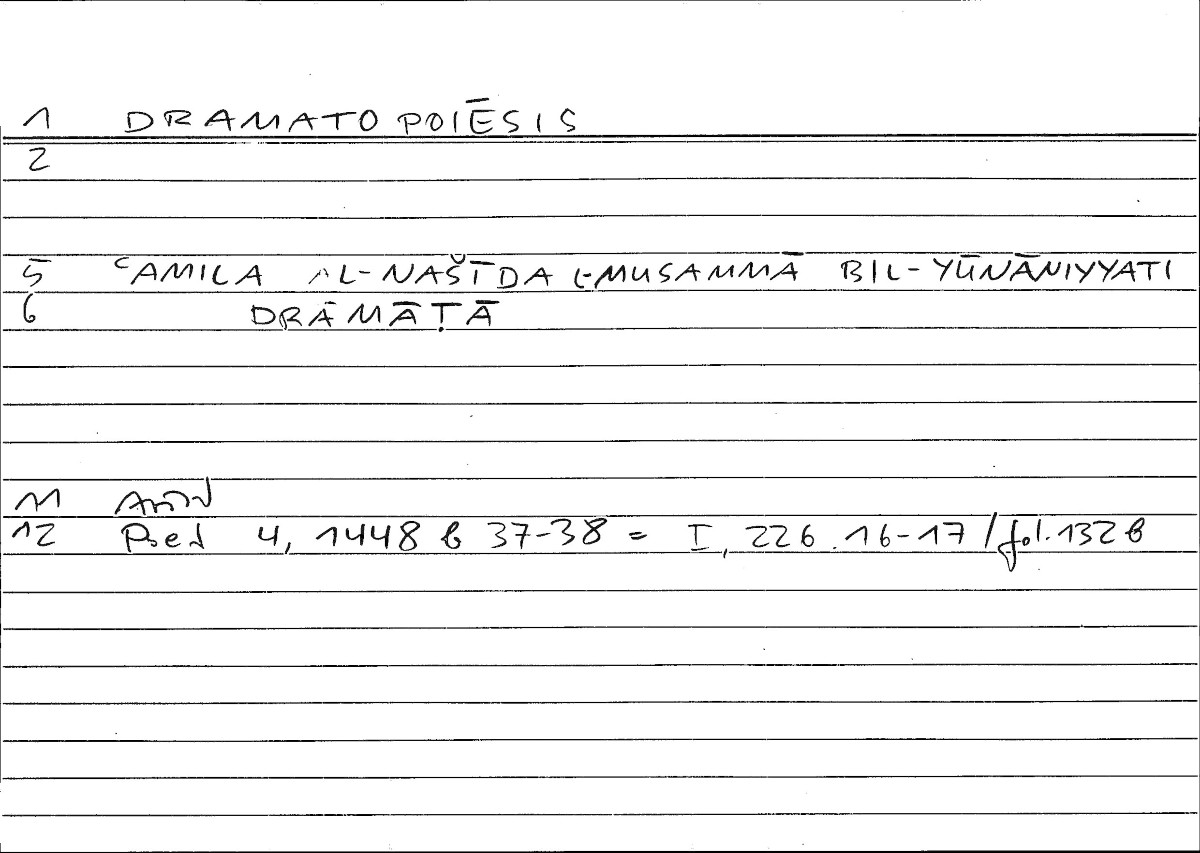 1 DRAMATOPOIĒSIS
2
5 ʿAMILA AL-NAŠĪDA L-MUSAMMĀ BIL-YŪNĀNIYYATI
6 DRĀMĀṬĀ
11 Arist
12 Poet 4, 1448 b 37-38 = I, 226.16-17/fol.132b